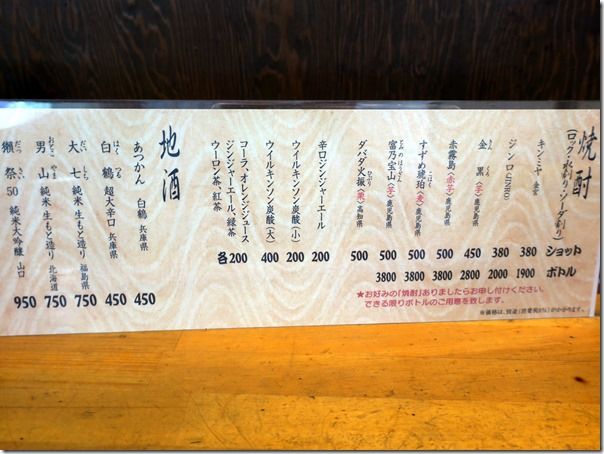 焼酎
(ロック・水割り・ソーダ割り)
ショット
ボトル
キンミヤ 金宮 380 1900
ジンロ(JINRO) 380 2000
金黒(芋)鹿児島県 450 2800
赤霧島(赤芋)鹿児島県 500 3800
すずめ琥珀(麦)鹿児島県 500 3800
富乃宝山(芋)鹿児島県 500 3800
ダバダ火振(栗)高知県 500
★お好みの「焼酎」ありましたらお申し付けください。
できる限りボトルのご用意を致します。
※価格は、別途(消費税8%)かかります。
辛口ジンジャーエール 200
ウイルキンソン炭酸(小) 200
ウイルキンソン炭酸(大) 400
コーラ・オレンジジュース
ジンジャーエール、緑茶
ウーロン茶、紅茶
各200
地酒
あつかん 白鶴 兵庫県 450
白鶴 超大辛口 兵庫県 450
大七 純米 生もと造り 福島県 750
男山 純米 生もと造り 北海道 750
獺祭 50 純米大吟醸 山口 950